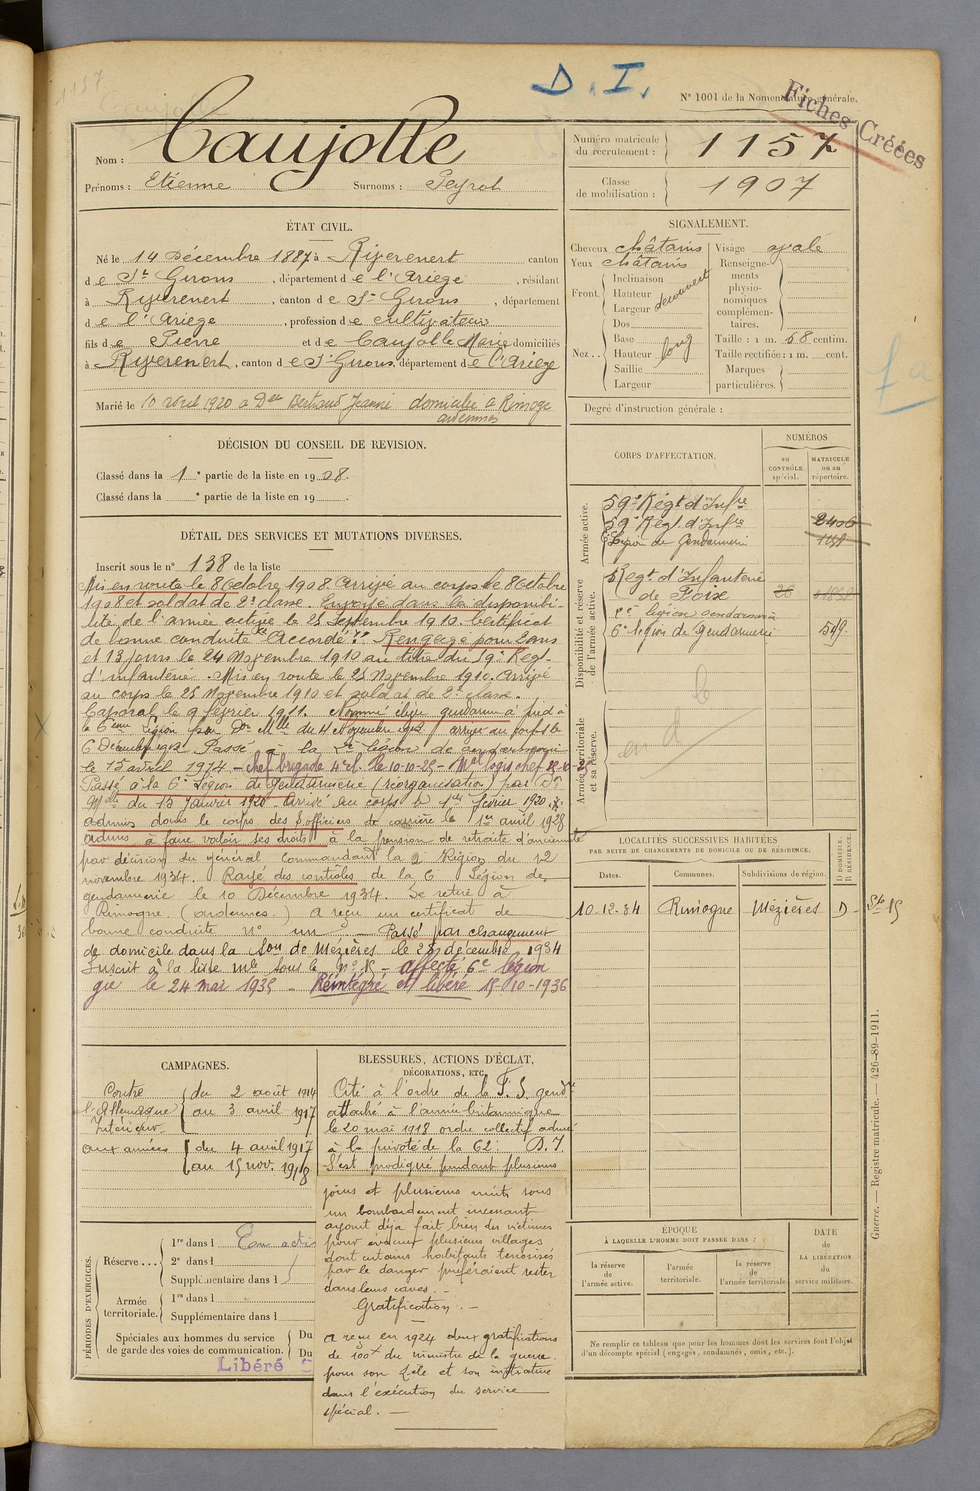 D. I.
N° 1001 de la Nomenclature générale.
Fiches Créées
1157
Nom : Caujolle
Prénoms : Etienne Surnoms : Peyrot
Numéro matricule du recrutement : 1157
Classe de mobilisation : 1907
ÉTAT CIVIL.
Né le 14 Décembre 1887 à Riverenert canton
de St Girons, département de l'Ariège, résidant
à Riverenert, canton de St Girons, département
de l'Ariège, profession de cultivateur
fils de Pierre et de Caujolle Marie domiciliés
à Riverenert, canton de St Girons, département de l'Ariège
Marié le 10 avril 1920 à Delle Bertrand Jeanne domiciliée à Rimogne
ardennes
SIGNALEMENT.
Cheveux châtains
Yeux châtains
Front. Inclinaison
Hauteur découvert
Largeur
Dos
Nez.. Base
Hauteur long
Saillie
Largeur
Visage ovale
Renseignements physionomiques complémentaires.
Taille : 1 m. 68 centim.
Taille rectifiée : 1 m. cent.
Marques particulières.
Degré d'instruction générale :
DÉCISION DU CONSEIL DE REVISION.
Classé dans la 1e partie de la liste en 1908.
Classé dans la e partie de la liste en 19 .
DÉTAIL DES SERVICES ET MUTATIONS DIVERSES.
Inscrit sous le n° 138 de la liste
Mis en route le 8 Octobre 1908. Arrivé au corps le 8 Octobre
1908 et soldat de 2e classe. Envoyé dans la disponibi-
lité de l'armée active le 25 Septembre 1910. Certificat
de bonne conduite "Accordé". Rengagé pour 2 ans
et 13 jours le 24 Novembre 1910 au titre du 59e Régt
d'infanterie. Mis en route le 25 Novembre 1910. Arrivé
au corps le 25 Novembre 1910 et soldat de 2e classe.
Caporal le 9 février 1911. Nommé élève gendarme à pied à
la 6ème légion par Don Mlle du 11 Novembre 1912 arrivé au corps le
6 Décembre 1912. Passé à la 2e légion de gendarmerie
le 15 avril 1914 - chef brigade 4e cl. le 10-10-25 - Mal logis chef
Passé à la 6e Légion de gendarmerie (réorganisation) par Dn
Mlle du 13 Janvier 1920. Arrivé au corps le 1er février 1920.
admis dans le corps des s/officiers de carrière le 1er avril 1928
admis à faire valoir ses droits à la pension de retraite d'ancienneté
par décision du général commandant la 2 Région du 12
novembre 1934. Rayé des contrôles de la 6 Légion de
gendarmerie le 10 Décembre 1934. Se retire à
Rimogne (ardennes.) A reçu un certificat de
bonne conduite n° un. - Passé par changement
de domicile dans la Son de Mézières le 28 décembre 1934
Inscrit à la liste mle sous le n° 15 - affecté 6e légion
gie le 24 mai 1935 - Réintégré et libéré 15-10-1936
CORPS D'AFFECTATION.
NUMÉROS
au CONTRÔLE spécial.
MATRICULE ou au répertoire.
Armée active.
59e Régt d'Infrie
59e Régt d'Infrie 2406
Légion de Gendarmerie
Disponibilité et réserve de l'armée active.
Régt d'Infanterie
de Foix 26
2e légion gendarmerie
6e légion de Gendarmerie 549.
Armée territoriale et sa réserve.
LOCALITÉS SUCCESSIVES HABITÉES
PAR SUITE DE CHANGEMENTS DE DOMICILE OU DE RÉSIDENCE.
Dates. Communes. Subdivisions de région. D DOMICILE. R RÉSIDENCE.
10.12.34 Rimogne Mézières D
CAMPAGNES.
Contre l'Allemagne
Intérieur du 2 août 1914
au 3 avril 1917
aux armées du 4 avril 1917
au 15 nov. 1918
BLESSURES, ACTIONS D'ÉCLAT,
DÉCORATIONS, ETC.
Cité à l'ordre de la F. S. gendrie
attaché à l'armée britannique
le 20 mai 1918 ordre collectif adressé
à la prévôté de la 62e D.I.
S'est prodigué pendant plusieurs
jours et plusieurs nuits sous
un bombardement incessant
ayant déjà fait bien des victimes
pour évacuer plusieurs villages
dont certains habitants terrorisés
par le danger préféraient rester
dans leurs caves. -
Gratification. -
A reçu en 1924 deux gratifications
de 100f du ministre de la guerre.
pour son zèle et son initiative
dans l'exécution du service
spécial. -
PÉRIODES D'EXERCICES.
Réserve... 1re dans l
2e dans l
Supplémentaire dans l
Armée territoriale. 1re dans l
Supplémentaire dans l
Spéciales aux hommes du service de garde des voies de communication. Du
Du
Libéré
ÉPOQUE
À LAQUELLE L'HOMME DOIT PASSER DANS :
la réserve de l'armée active.
l'armée territoriale.
la réserve de l'armée territoriale.
DATE de LA LIBÉRATION du service militaire.
Ne remplir ce tableau que pour les hommes dont les services font l'objet
d'un décompte spécial (engagés, condamnés, omis, etc.).
Guerre. — Registre matricule. — 426-89-1911.